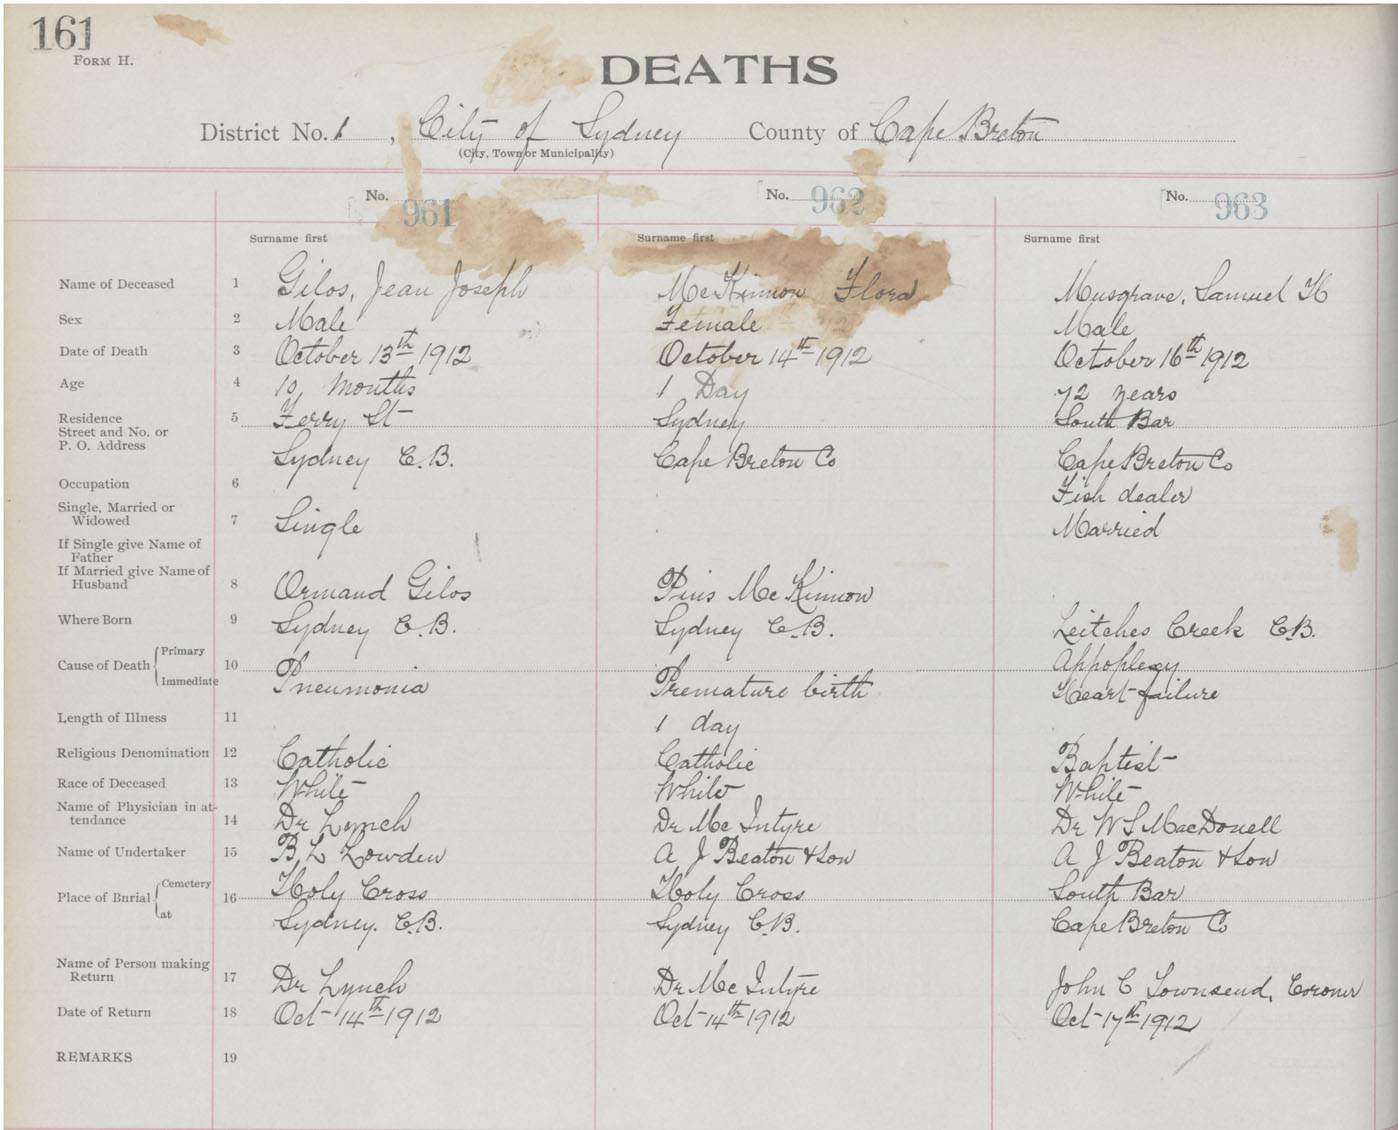 161
FORM H.
DEATHS
District No. 1, City of Sydney County of Cape Breton
(City, Town or Municipality)
No. 961 No. 962 No. 963
Surname first Surname first Surname first
Name of Deceased 1 Gilos, Jean Joseph McKinnon Flora Musgrave, Samuel H
Sex 2 Male Female Male
Date of Death 3 October 13th 1912 October 14th 1912 October 16th 1912
Age 4 10 months 1 Day 72 years
Residence 5 Ferry St Sydney South Bar
Street and No. or
P. O. Address Sydney C.B. Cape Breton Co Cape Breton Co
Occupation 6 Fish dealer
Single, Married or
Widowed 7 Single Married
If Single give Name of
Father
If Married give Name of
Husband 8 Ormand Gilos Pius McKinnon
Where Born 9 Sydney C.B. Sydney C.B. Leitches Creek C.B.
Cause of Death Primary 10 Appoplexy
Immediate Pneumonia Premature birth Heart failure
Length of Illness 11 1 day
Religious Denomination 12 Catholic Catholic Baptist
Race of Deceased 13 White White White
Name of Physician in at-
tendance 14 Dr Lynch Dr McIntyre Dr W S MacDonell
Name of Undertaker 15 B, L Lowden A J Beaton & Son A J Beaton & Son
Place of Burial Cemetery 16 Holy Cross Holy Cross South Bar
at Sydney. C.B. Sydney C.B. Cape Breton Co
Name of Person making
Return 17 Dr Lynch Dr McIntyre John C Townsend, Coroner
Date of Return 18 Oct 14th 1912 Oct 14th 1912 Oct 17th 1912
REMARKS 19